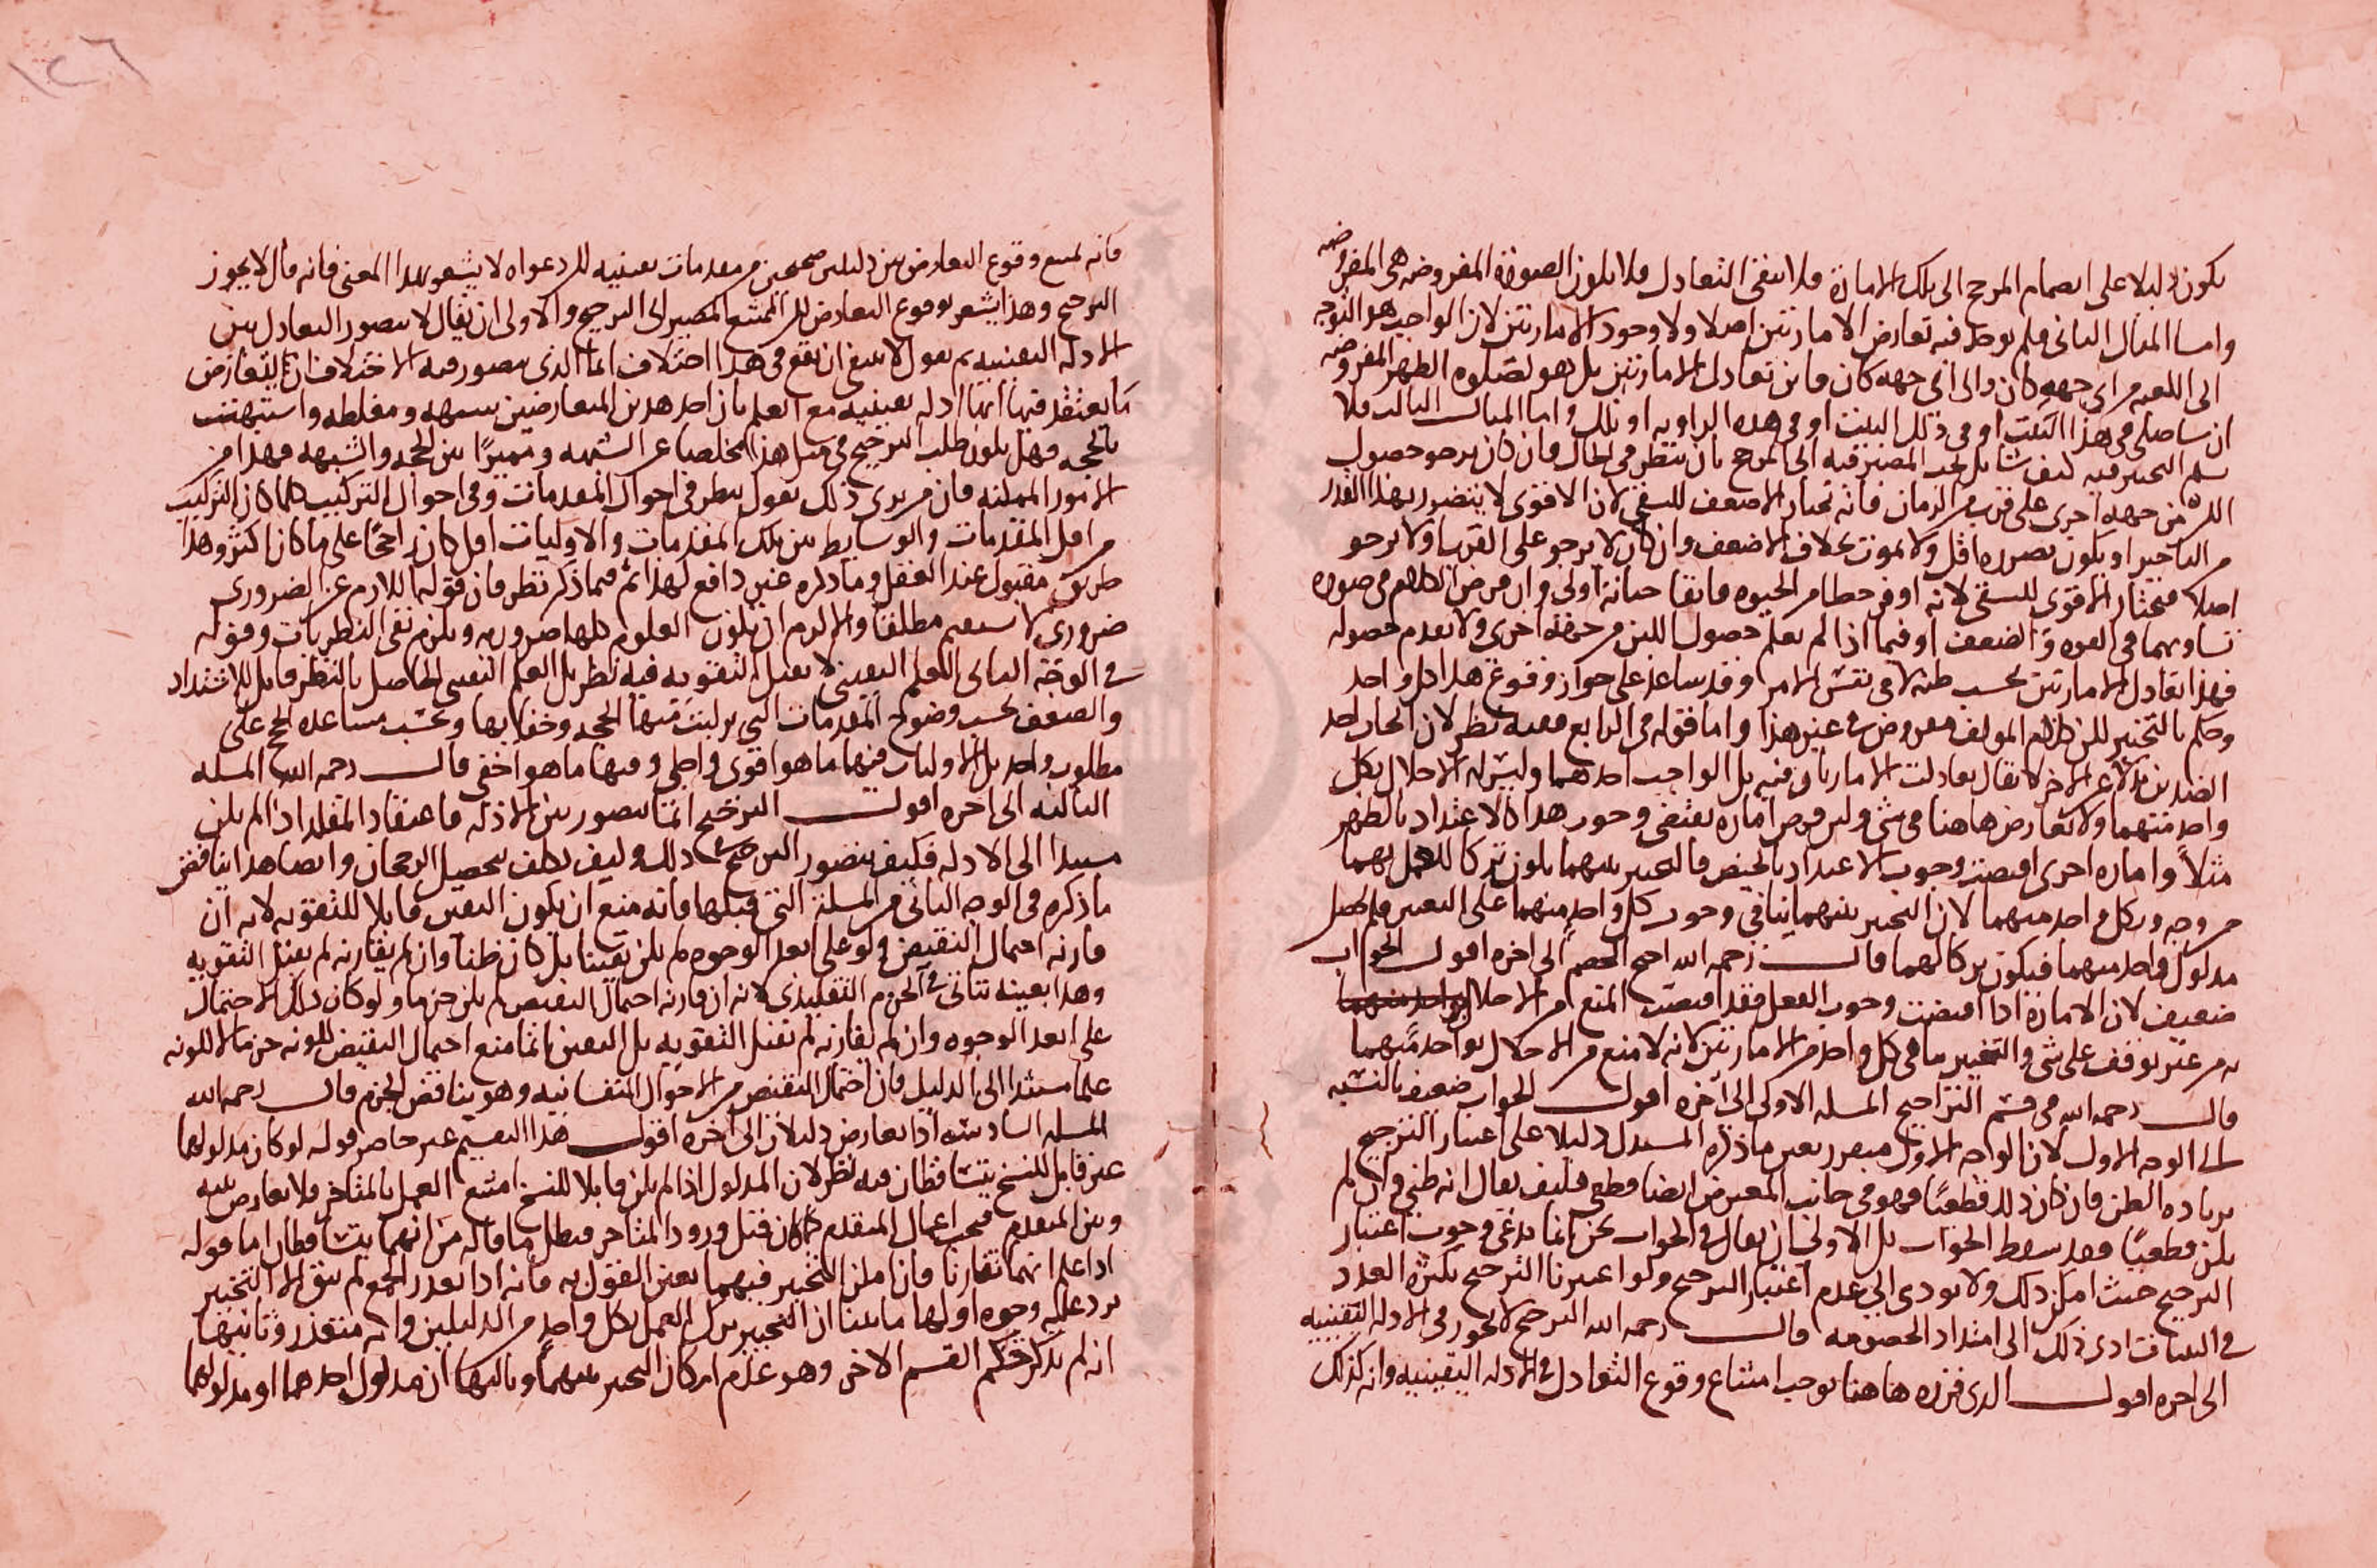 يكون دليلا على انضمام المرجح الى تلك الامارة فلا ينفى التعادل فلا يكون الصورة المفروضة هى المفروضه
واما المثال الثانى فلم يوجد فيه تعارض الامارتين اصلا ولا وجود الامارتين لان الواجب هو التوجه
الى الكعبه من اى جهه كان والى اى جهه كان فاين تعادل الامارتين بل هو لصلوه الظهر المفروضه
ان شا صلى فى هذا البيت او فى ذلك البيت او فى هذه الزاويه او تلك واما المثال الثالث فلا
نسلم التخير فيه كيف شا بل يجب المصير فيه الى المرجح بان ينظر فى الحال فان كان يرجو حصول
اللبن من جهه اخرى على قرب من الزمان فانه يختار الاضعف للسقى لان الاقوى لا يتضرر بهذا القدر
من التاخير او يكون تضرره اقل ولا يموت بخلاف الاضعف وان كان لا يرجو على القرب او لا يرجو
اصلا فيختار الاقوى للسقى لانه اوفر حظا من الحيوه فابقا حياته اولى وان فرض الكلام فى صوره
تساويهما فى القوه والضعف او فيما اذا لم يعلم حصول اللبن من جهة اخرى ولا يعدم حصوله
فهذا تعادل الامارتين بحسب ظنه لا فى نفس الامر وقد ساعد على جواز وقوع هذا كل واحد
وحكم بالتخيير لكن كلام المولف مفروض فى غير هذا واما قوله فى الرابع ففيه نظر لان انحاز احد
الضدين بدلا عن الاخر لا يقال تعادلت الامارتان فيه بل الواجب احدهما وليس له الاخلال بكل
واحد منهما ولا تعارض هاهنا فى شى ولين فرض اماره يقتضى وجوب هذا كالاعتداد بالطهر
مثلا واماره اخرى اقتضت وجوب الاعتداد بالحيض فالتخيير بينهما يكون تركا للعمل بهما
من وجه وبكل واحد منهما لان التخيير بينهما ينافى وجوب كل واحد منهما على التعيين فلم يحصل
مدلول واحد منهما فيكون تركا لهما قال رحمه الله احتج الخصم الى اخره اقول الجواب
ضعيف لان الامارة اذا اقتضت وجوب الفعل فقد اقتضت المنع من الاخلال
به من غير توقف على شى والتخيير نافى كل واحد من الامارتين لانه لا منع من الاخلال بواحد منهما
قال رحمه الله فى قسم التراجيح المسله الاولى الى اخره اقول الجواب ضعيف بالنسبه
الى الوجه الاول لان الوجه الاول مبصر بعين ما ذكره المستدل دليلا على اعتبار الترجيح
بزياده الظن فان كان ذلك قطعيا فهو فى جانب المعترض ايضا قطعى فكيف يقال انه ظنى وان لم
يكن قطعيا فقد سقط الجواب بل الاولى ان يقال فى الجواب نحن انما ندعى وجوب اعتبار
الترجيح حيث امكن ذلك ولا يودى الى عدم اعتبار الترجيح ولو اعتبرنا الترجيح بكثرة العدد
فى البينات ادى ذلك الى امتداد الخصومه قال رحمه الله الترجيح لا يجوز فى الادلة اليقينيه
الى اخره اقول الذى قرره هاهنا يوجب امتناع وقوع التعادل فى الادله اليقينيه وانه كذلك
١٢٦
فانه لمنع وقوع التعارض بين دليلين صحيحين من مقدمات يقينيه لكن دعواه لا يشعر بهذا المعنى فانه قال لا يجوز
الترجيح وهذا يشعر بوقوع التعارض لكن الممتنع المصير الى الترجيح والاولى ان يقال لا يتصور التعادل بين
الادله اليقينيه ثم نقول لا ينبغى ان يقع فى هذا اختلاف انما الذى يتصور فيه الاختلاف ان التعارض
ما يعتقد فيها انها ادله يقينيه مع العلم بان احد هذين المتعارضين شبهه ومغلطه واشتبهت
بالحجه فهل يكون طلب الترجيح فى مثل هذا مخلصا عن الشبهه ومميزا بين الحجه والشبهه فهذا من
الامور الممكنه فان من يرى ذلك يقول ينظر فى احوال المقدمات وفى احوال التركيب فلما كان التركيب
من اقل المقدمات والوسايط بين تلك المقدمات والاوليات اقل كان راجحا على ما كان اكثر وهذا
طريق مقبول عند العقل وما ذكره غير دافع لهذا ثم فيما ذكر نظر فان قوله اللازم عن الضرورى
ضرورى لا يستقيم مطلقا والا لزم ان يكون العلوم كلها ضروريه ويلزم نفى النظريات وقوله
فى الوجه الثانى العلم اليقينى لا يقبل التقويه فيه نظر بل العلم اليقينى الحاصل بالنظر قابل للاشتداد
والضعف بحسب وضوح المقدمات التى تركبت منها الحجه وخفايها وبحسب مساعده الحجج على
مطلوب واحد بل الاوليات منها ما هو اقوى واجلى ومنها ما هو اخفى قال رحمه الله المسله
الثالثه الى اخره اقول الترجيح انما يتصور بين الادله فاعتقاد المقلد اذا لم يكن
مستندا الى الادله فكيف يتصور الترجيح فى ذلك وكيف يكلف بتحصيل الرجحان وايضا هذا يناقض
ما ذكره فى الوجه الثانى من المسلة التى قبلها فانه منع ان يكون اليقين قابلا للتقويه لانه ان
قارنه احتمال النقيض ولو على ابعد الوجوه لم يكن يقينا بل كان ظنا وان لم يقارنه لم يقبل التقويه
وهذا بعينه يتاتى فى الجزم التقليدى لانه ان قارنه احتمال النقيض لم يكن جزما ولو كان ذلك الاحتمال
على ابعد الوجوه وان لم يقارنه لم يقبل التقويه بل اليقين انما منع احتمال النقيض لكونه جزما لا لكونه
علما مستندا الى الدليل فان احتمال النقيض من الاحوال النفسانيه وهو يناقض الجزم قال رحمه الله
المسله السادسه اذا تعارض دليلان الى اخره اقول هذا التقسيم غير حاصر قوله لو كان مدلولهما
غير قابل للنسخ يتساقطان فيه نظر لان المدلول اذا لم يكن قابلا للنسخ امتنع العمل بالمتاخر فلا تعارض بينه
وبين المتقدم فيجب اعمال المتقدم كما كان قبل ورود المتاخر فبطل ما قاله من انهما يتساقطان اما قوله
اذا علم انهما تقارنا فان امكن التخيير فيهما تعين القول به فانه اذا تعذر الجمع لم يبق الا التخيير
يرد عليه وجوه اولها ما بينا ان التخيير ترك العمل بكل واحد من الدليلين وانه متعذر وثانيها
انه لم يذكر حكم القسم الاخر وهو عدم امكان التخيير بينهما وثالثها ان مدلول احدهما او مدلولهما